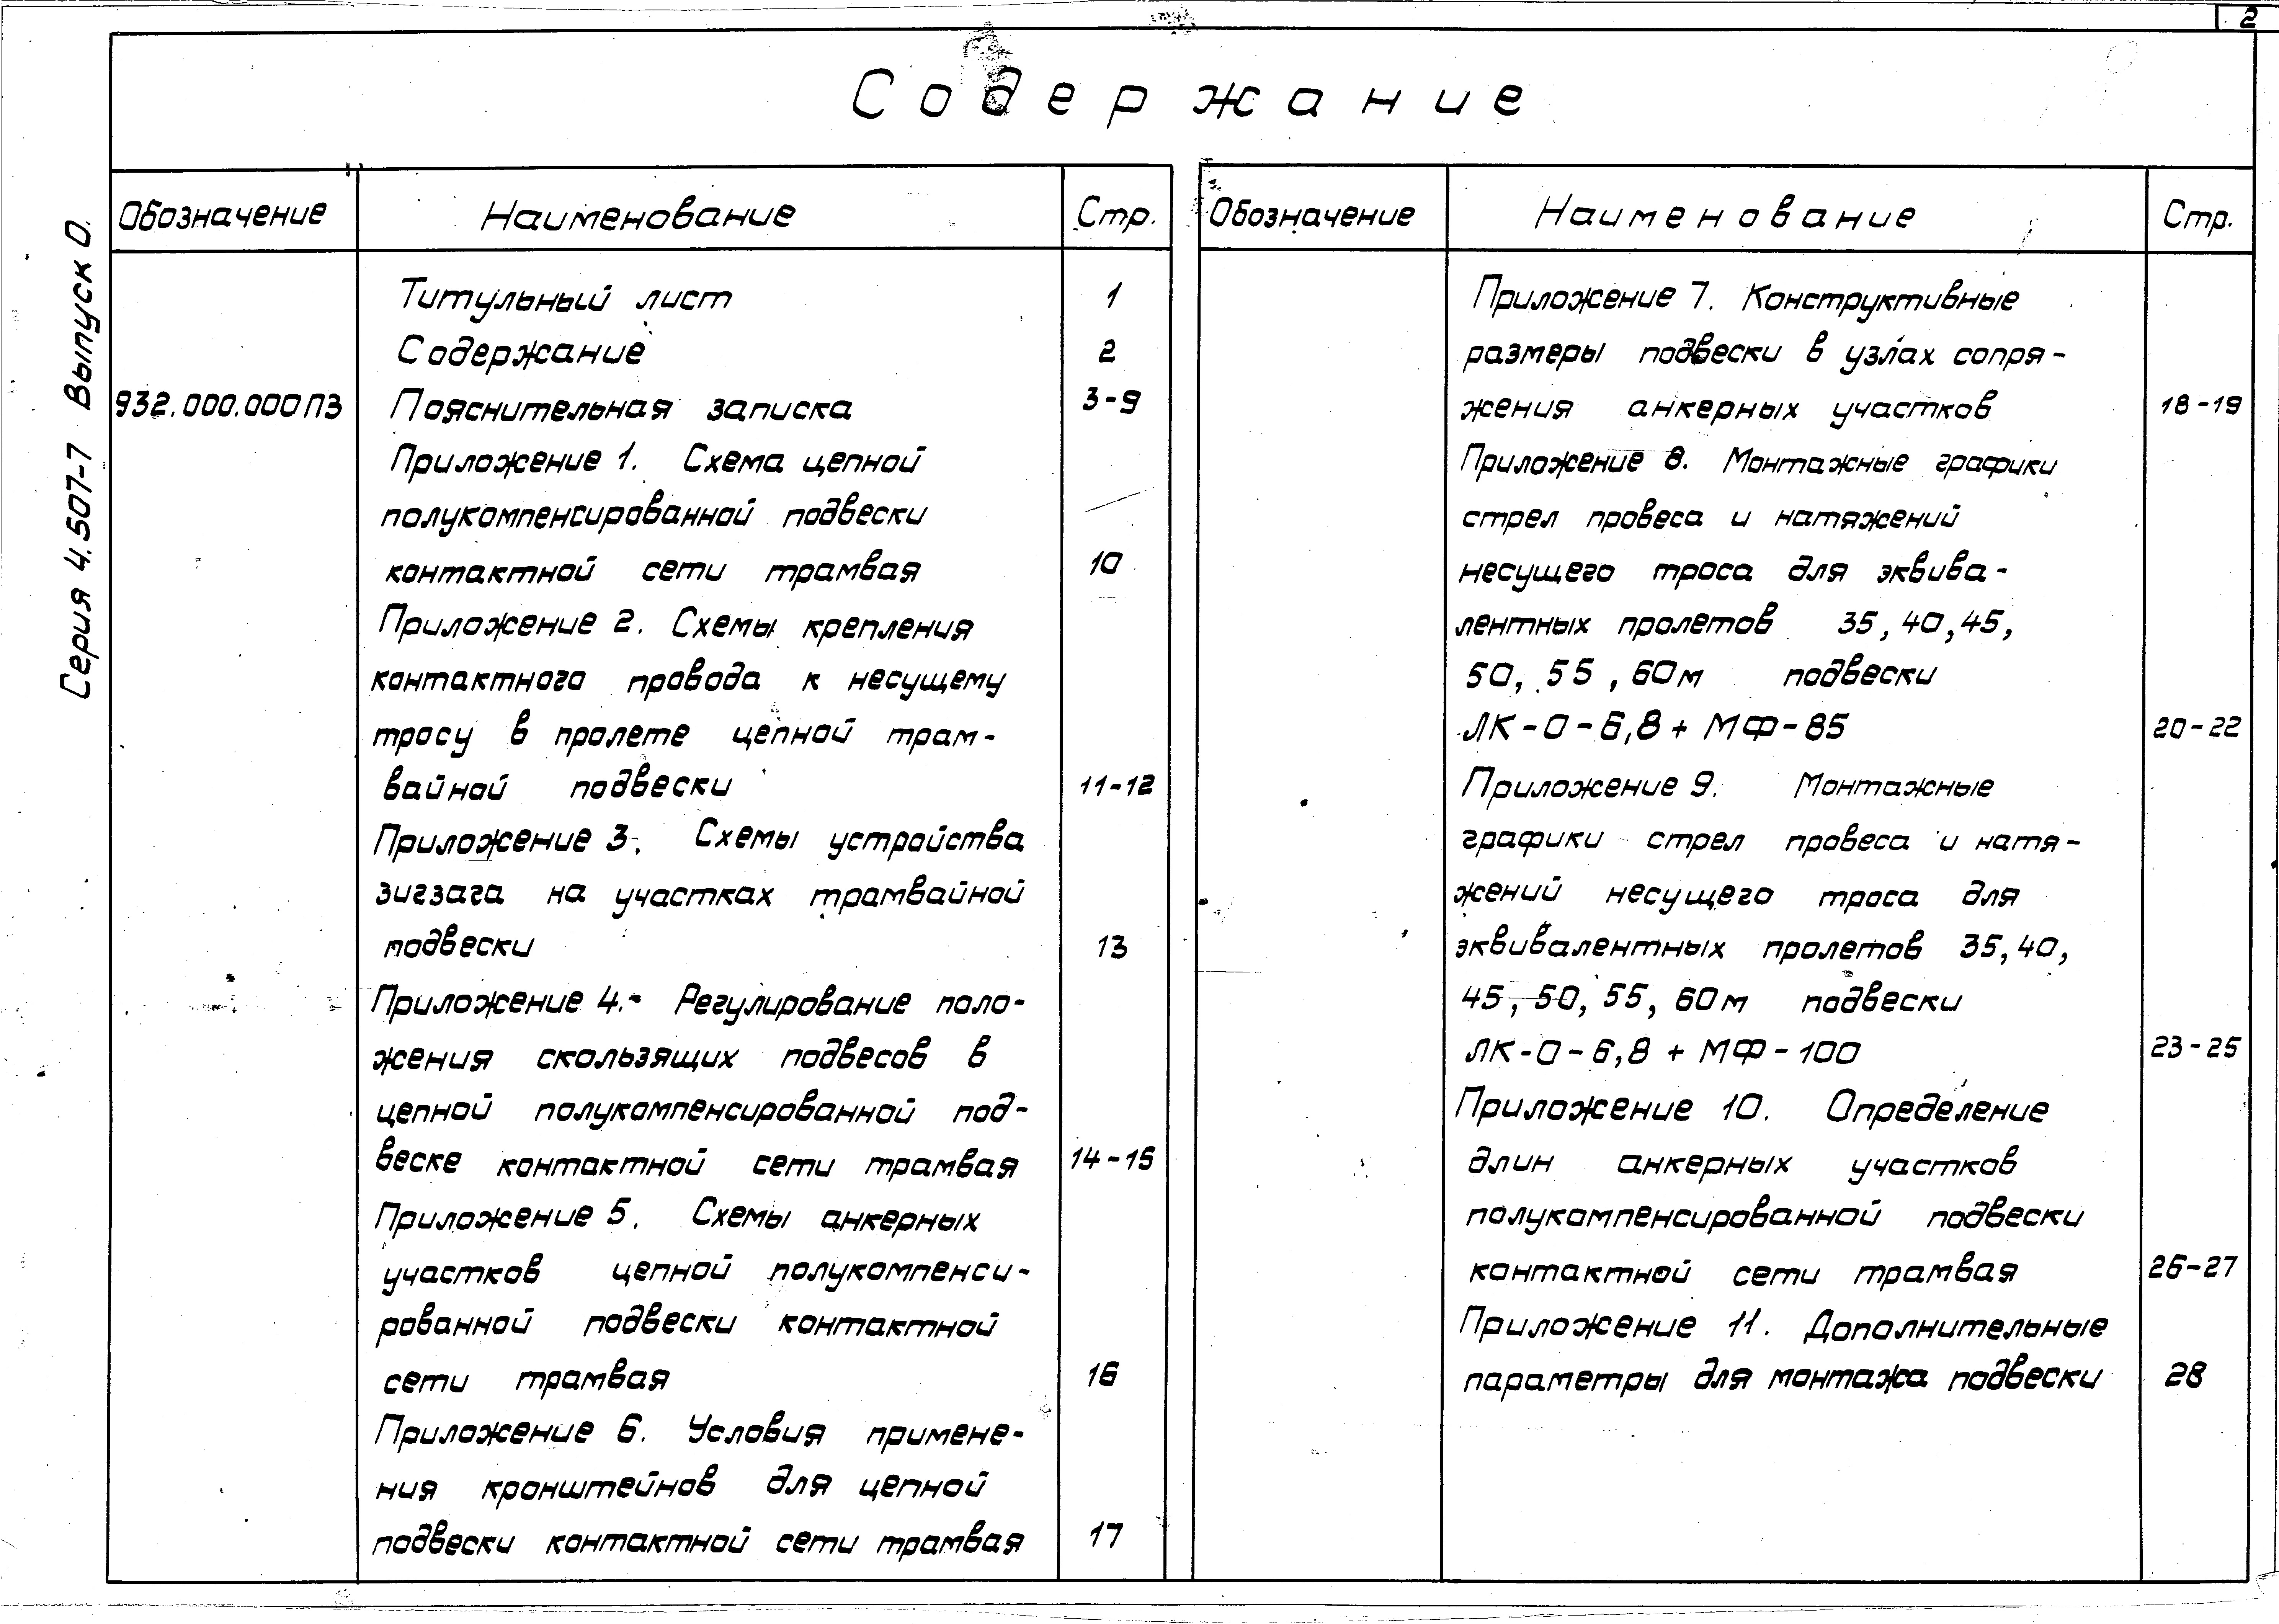 2
Содержание
Серия 4.507-7 Выпуск 0.
Обозначение Наименование Стр.
Титульный лист 1
Содержание 2
932.000.000ПЗ Пояснительная записка 3-9
Приложение 1. Схема цепной
полукомпенсированной подвески
контактной сети трамвая 10
Приложение 2. Схемы крепления
контактного провода к несущему
тросу в пролете цепной трам-
вайной подвески 11-12
Приложение 3. Схемы устройства
зигзага на участках трамвайной
подвески 13
Приложение 4. Регулирование поло-
жения скользящих подвесов в
цепной полукомпенсированной под-
веске контактной сети трамвая 14-15
Приложение 5. Схемы анкерных
участков цепной полукомпенси-
рованной подвески контактной
сети трамвая 16
Приложение 6. Условия примене-
ния кронштейнов для цепной
подвески контактной сети трамвая 17
Обозначение Наименование Стр.
Приложение 7. Конструктивные
размеры подвески в узлах сопря-
жения анкерных участков 18-19
Приложение 8. Монтажные графики
стрел провеса и натяжений
несущего троса для эквива-
лентных пролетов 35, 40, 45,
50, 55, 60м подвески
ЛК-О-6,8 + МФ-85 20-22
Приложение 9. Монтажные
графики стрел провеса и натя-
жений несущего троса для
эквивалентных пролетов 35, 40,
45, 50, 55, 60м подвески
ЛК-О-6,8 + МФ-100 23-25
Приложение 10. Определение
длин анкерных участков
полукомпенсированной подвески
контактной сети трамвая 26-27
Приложение 11. Дополнительные
параметры для монтажа подвески 28